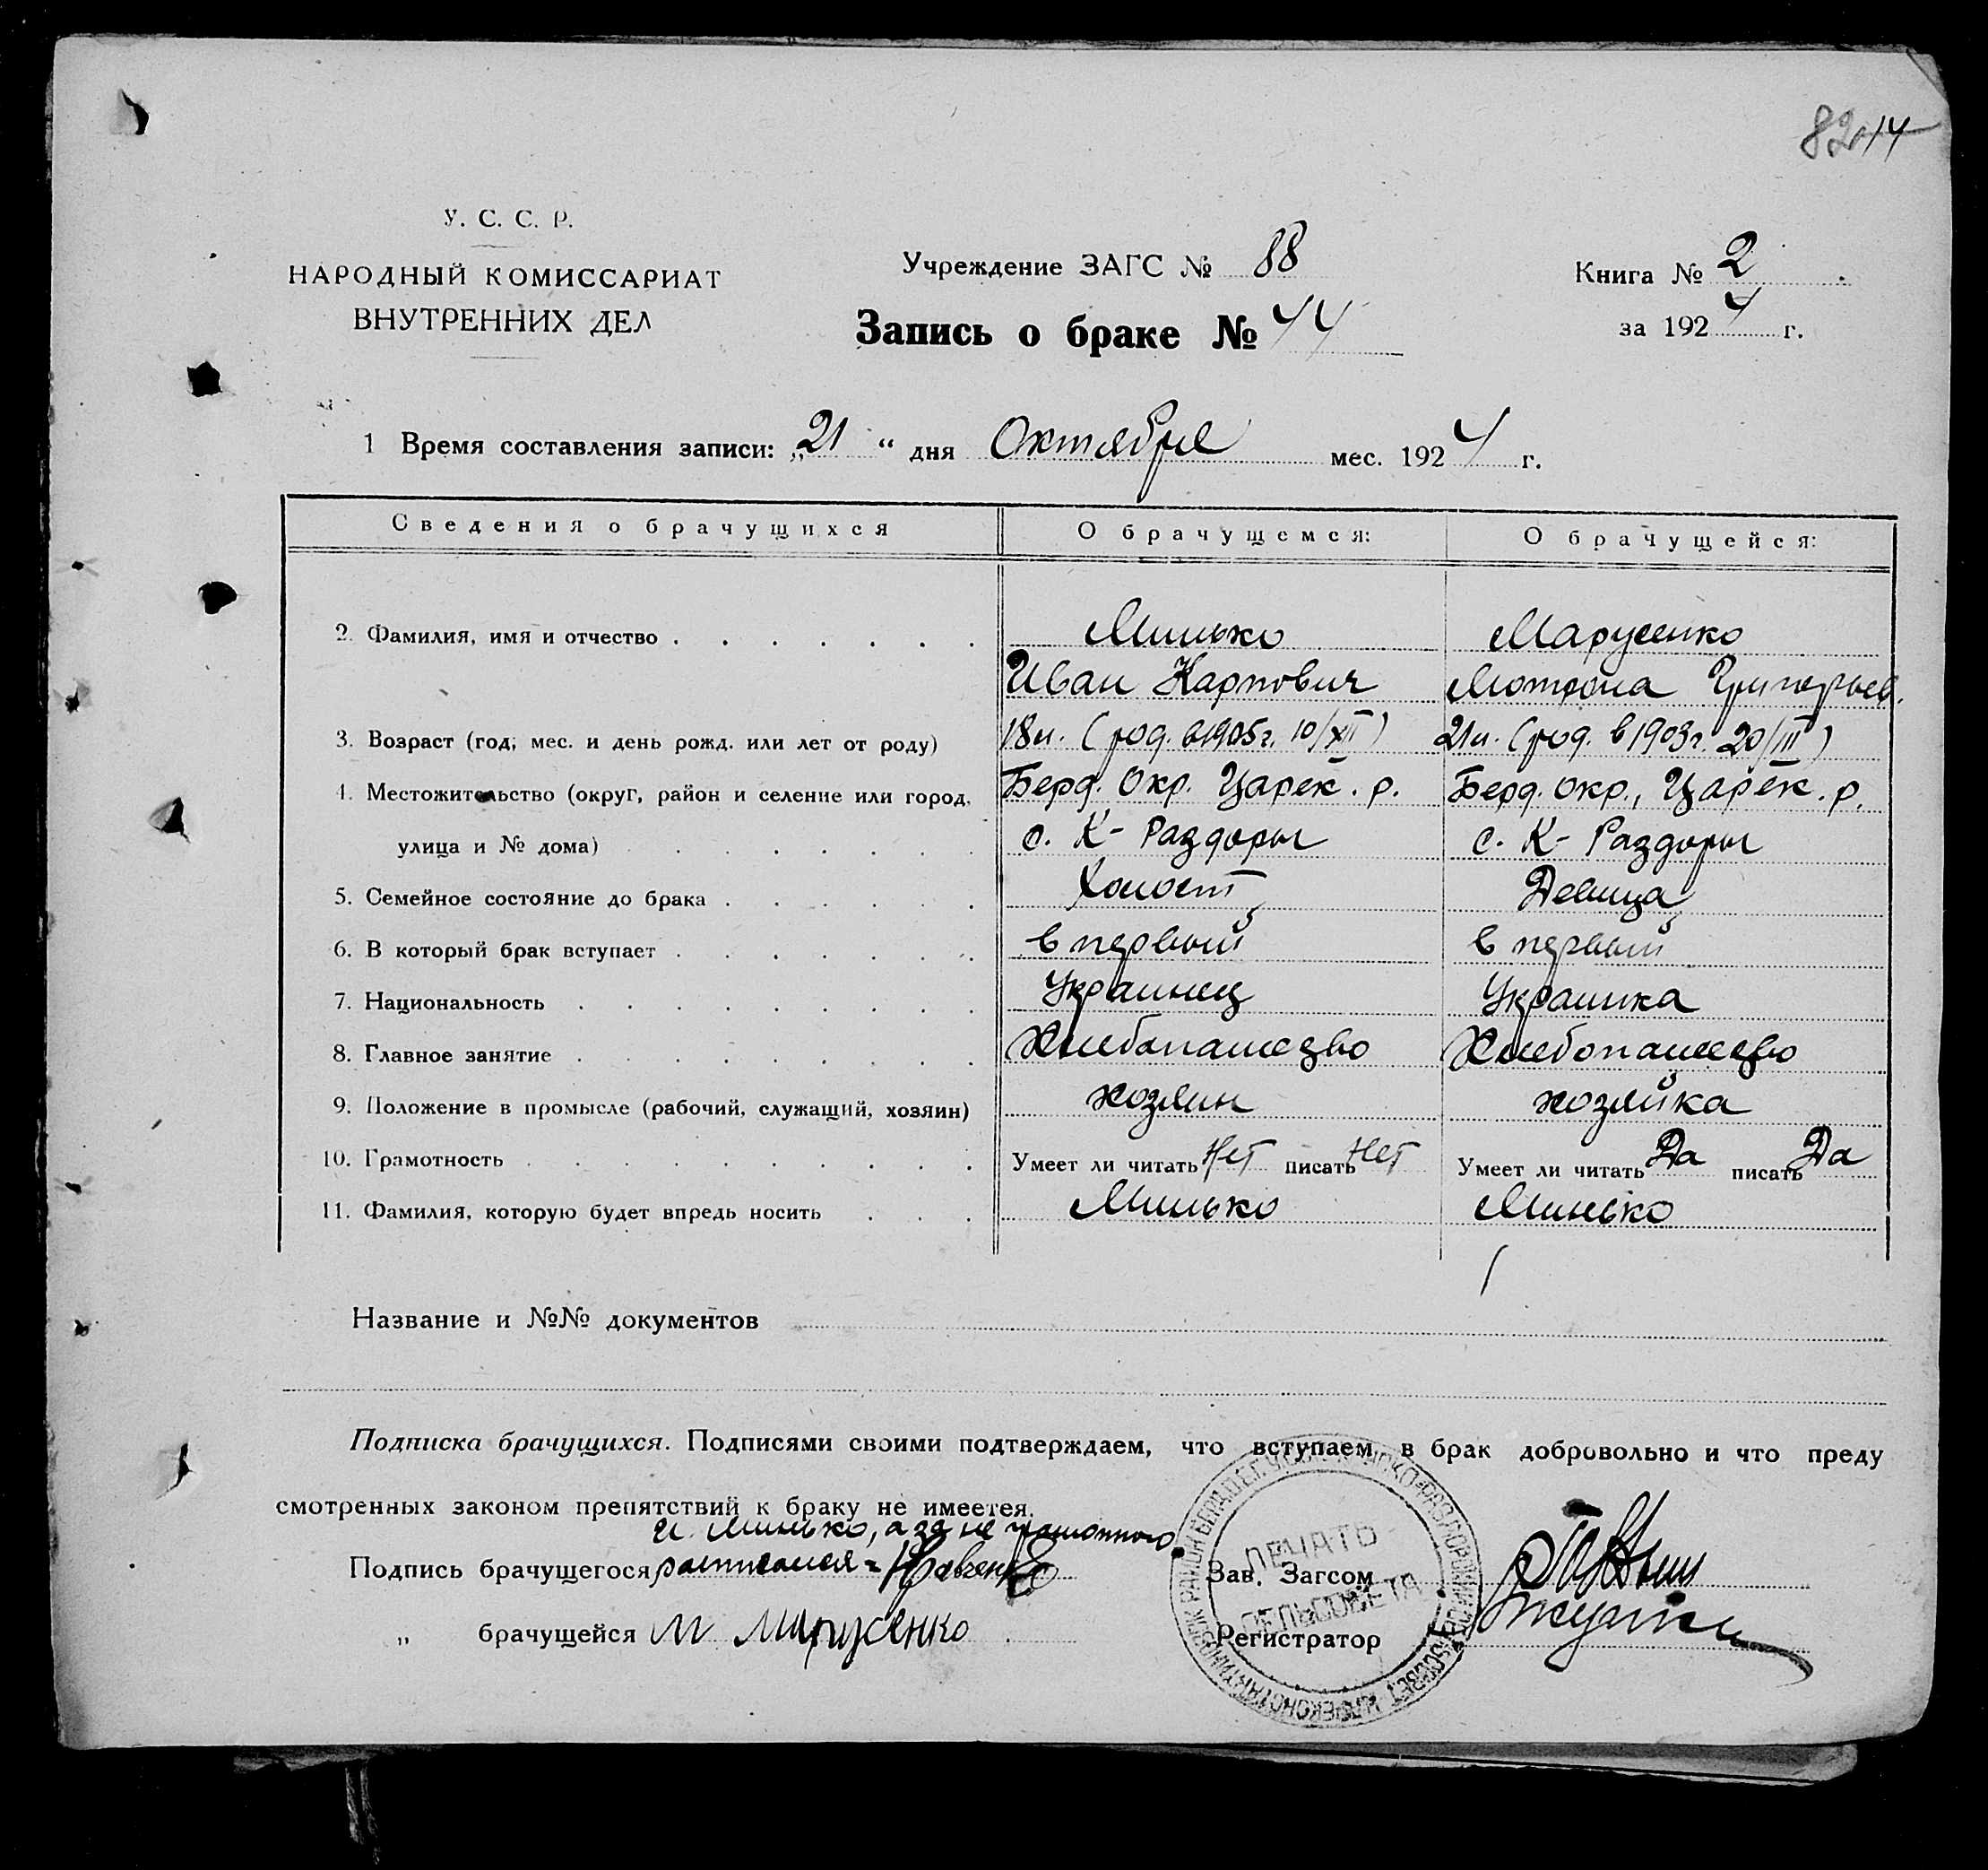 8214
У. С. С. Р.
НАРОДНЫЙ КОМИССАРИАТ
ВНУТРЕННИХ ДЕЛ
Учреждение ЗАГС № 88
Запись о браке № 44
Книга № 2
за 1924 г.
1 Время составления записи: „21“ дня Октября мес. 1924 г.
Сведения о брачущихся О брачущемся: О брачущейся:
2. Фамилия, имя и отчество Минько Марусенко
Иван Карпович Мотрона Григорьев.
3. Возраст (год, мес. и день рожд. или лет от роду) 18л. (род. в 1905г. 10/XII) 21л. (род. в 1903г. 20/III)
4. Местожительство (округ, район и селение или город, Берд. Окр. Царек. р. Берд. Окр., Царек. р.
улица и № дома) с. К-Раздоры с. К-Раздоры
5. Семейное состояние до брака Холост Девица
6. В который брак вступает в первый в первый
7. Национальность Украинец Украинка
8. Главное занятие Хлебопашество Хлебопашество
9. Положение в промысле (рабочий, служащий, хозяин) хозяин хозяйка
10. Грамотность Умеет ли читать Нет писать Нет Умеет ли читать Да писать Да
11. Фамилия, которую будет впредь носить Минько Минько
Название и №№ документов
Подписка брачущихся. Подписями своими подтверждаем, что вступаем в брак добровольно и что преду
смотренных законом препятствий к браку не имеется.
И. Минько, а за не грамотного
Подпись брачущегося расписался Кравченко
„ брачущейся М Марусенко
Зав. Загсом
Регистратор
ПЕЧАТЬ
СЕЛЬСОВЕТА